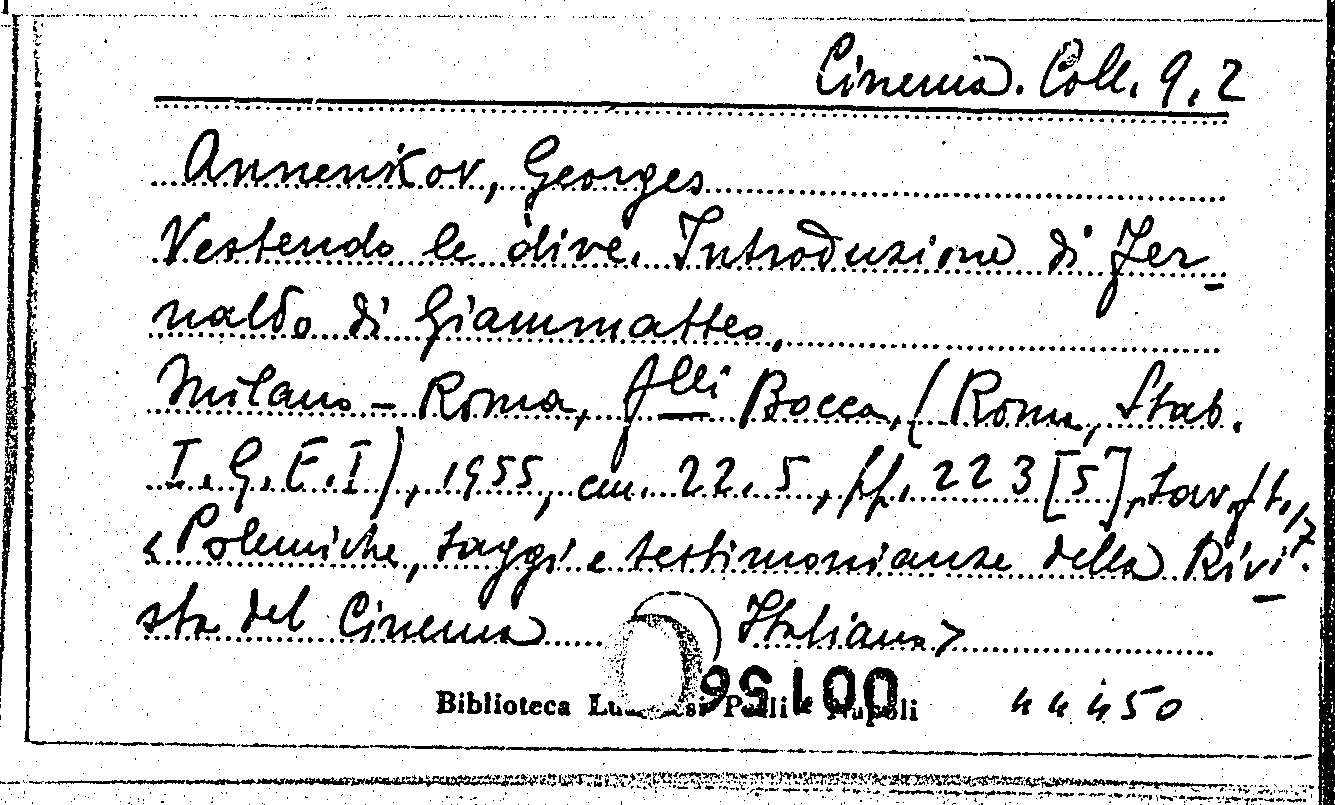 Cinema. Coll. 9.2
Annenkov, Georges
Vestendo le dive. Introduzione di Fer-
naldo di Giammatteo.
Milano - Roma, f.lli Bocca, (Roma, Stab.
I.G.E.I), 1955, cm. 22.5, pp. 223 [5], tav. ft., 7.
< Polemiche, saggi e testimonianze della Rivi-
sta del Cinema Italiano >
00156
Biblioteca Pelli - Napoli 44450